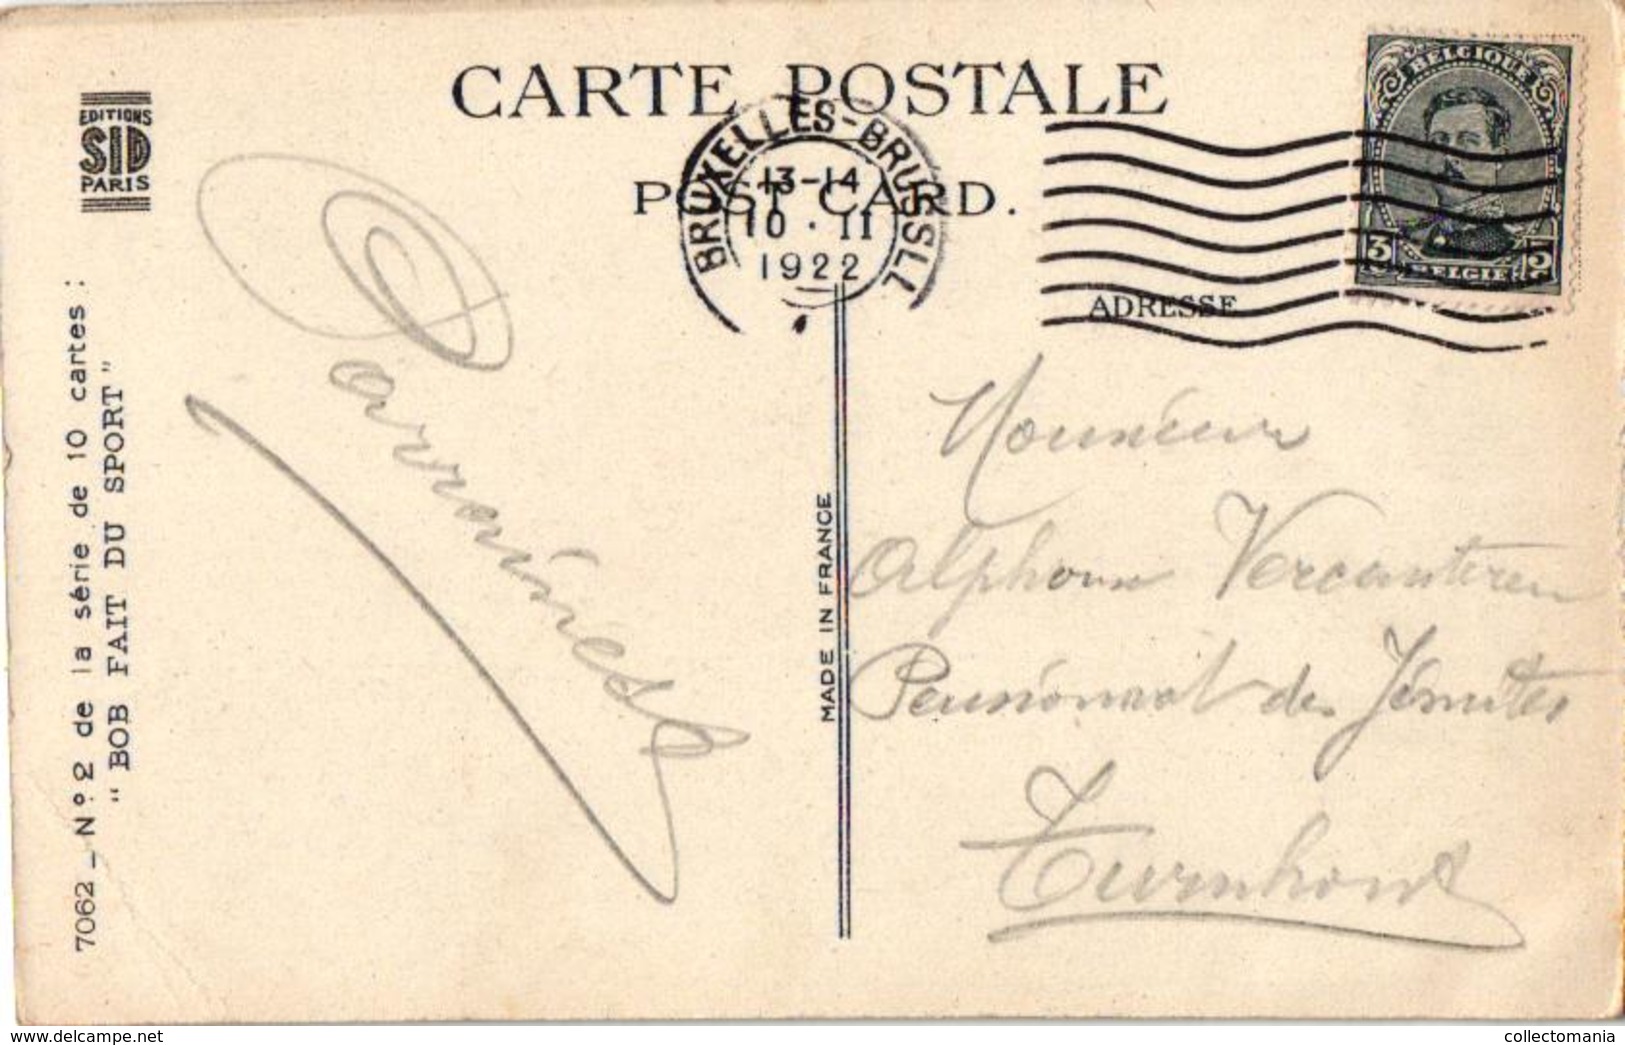 CARTE POSTALE
POST CARD.
EDITIONS
SID
PARIS
BRUXELLES-BRUSSEL
13-14
10 · II
1922
BELGIQUE
3 3
BELGIË
ADRESSE
7062 _ N° 2 de la série de 10 cartes :
" BOB FAIT DU SPORT "
MADE IN FRANCE
Monsieur
Alphonse Vercauteren
Pensionnat des Jésuites
Turnhout
collectomania
https://www.delcampe.net